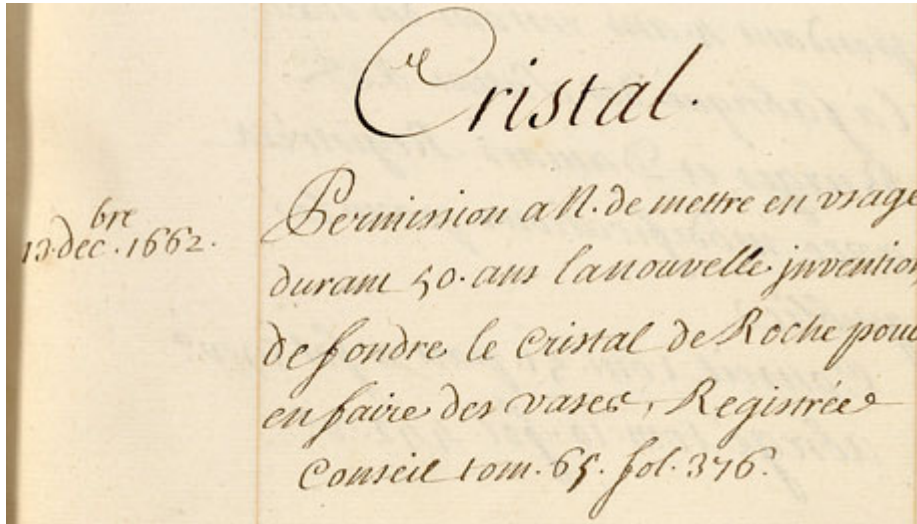 Cristal.
13. dec.bre 1662.
Permission a N. de mettre en vsage
durant 50. ans lanouvelle jnvention
de fondre le Cristal de Roche pour
en faire des vases, Registrée
Conseil tom. 65. fol. 376.